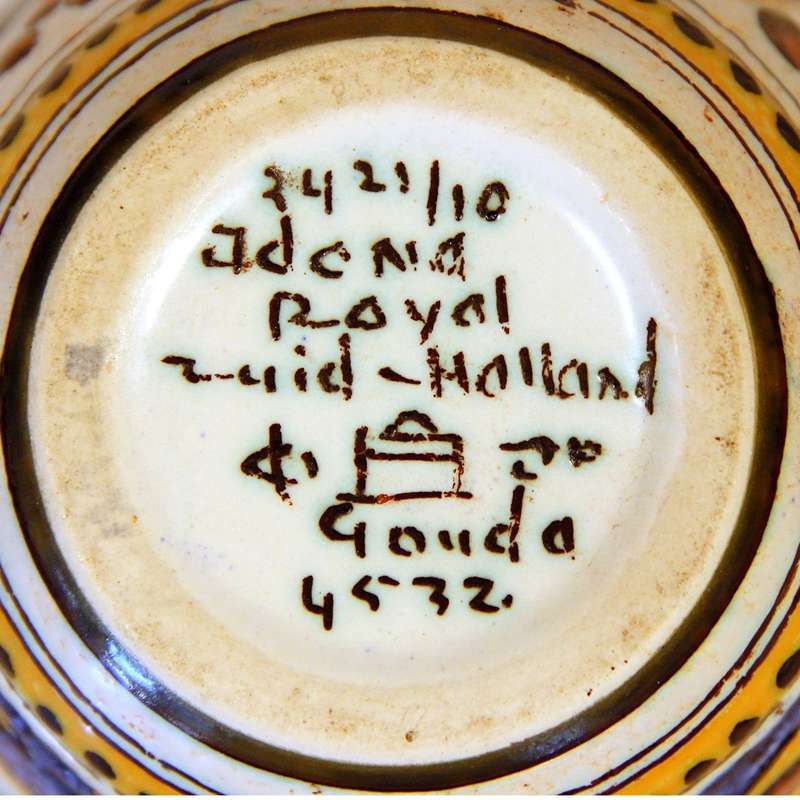 3421/10
Adona
Royal
Zuid-Holland
Gouda
4532.